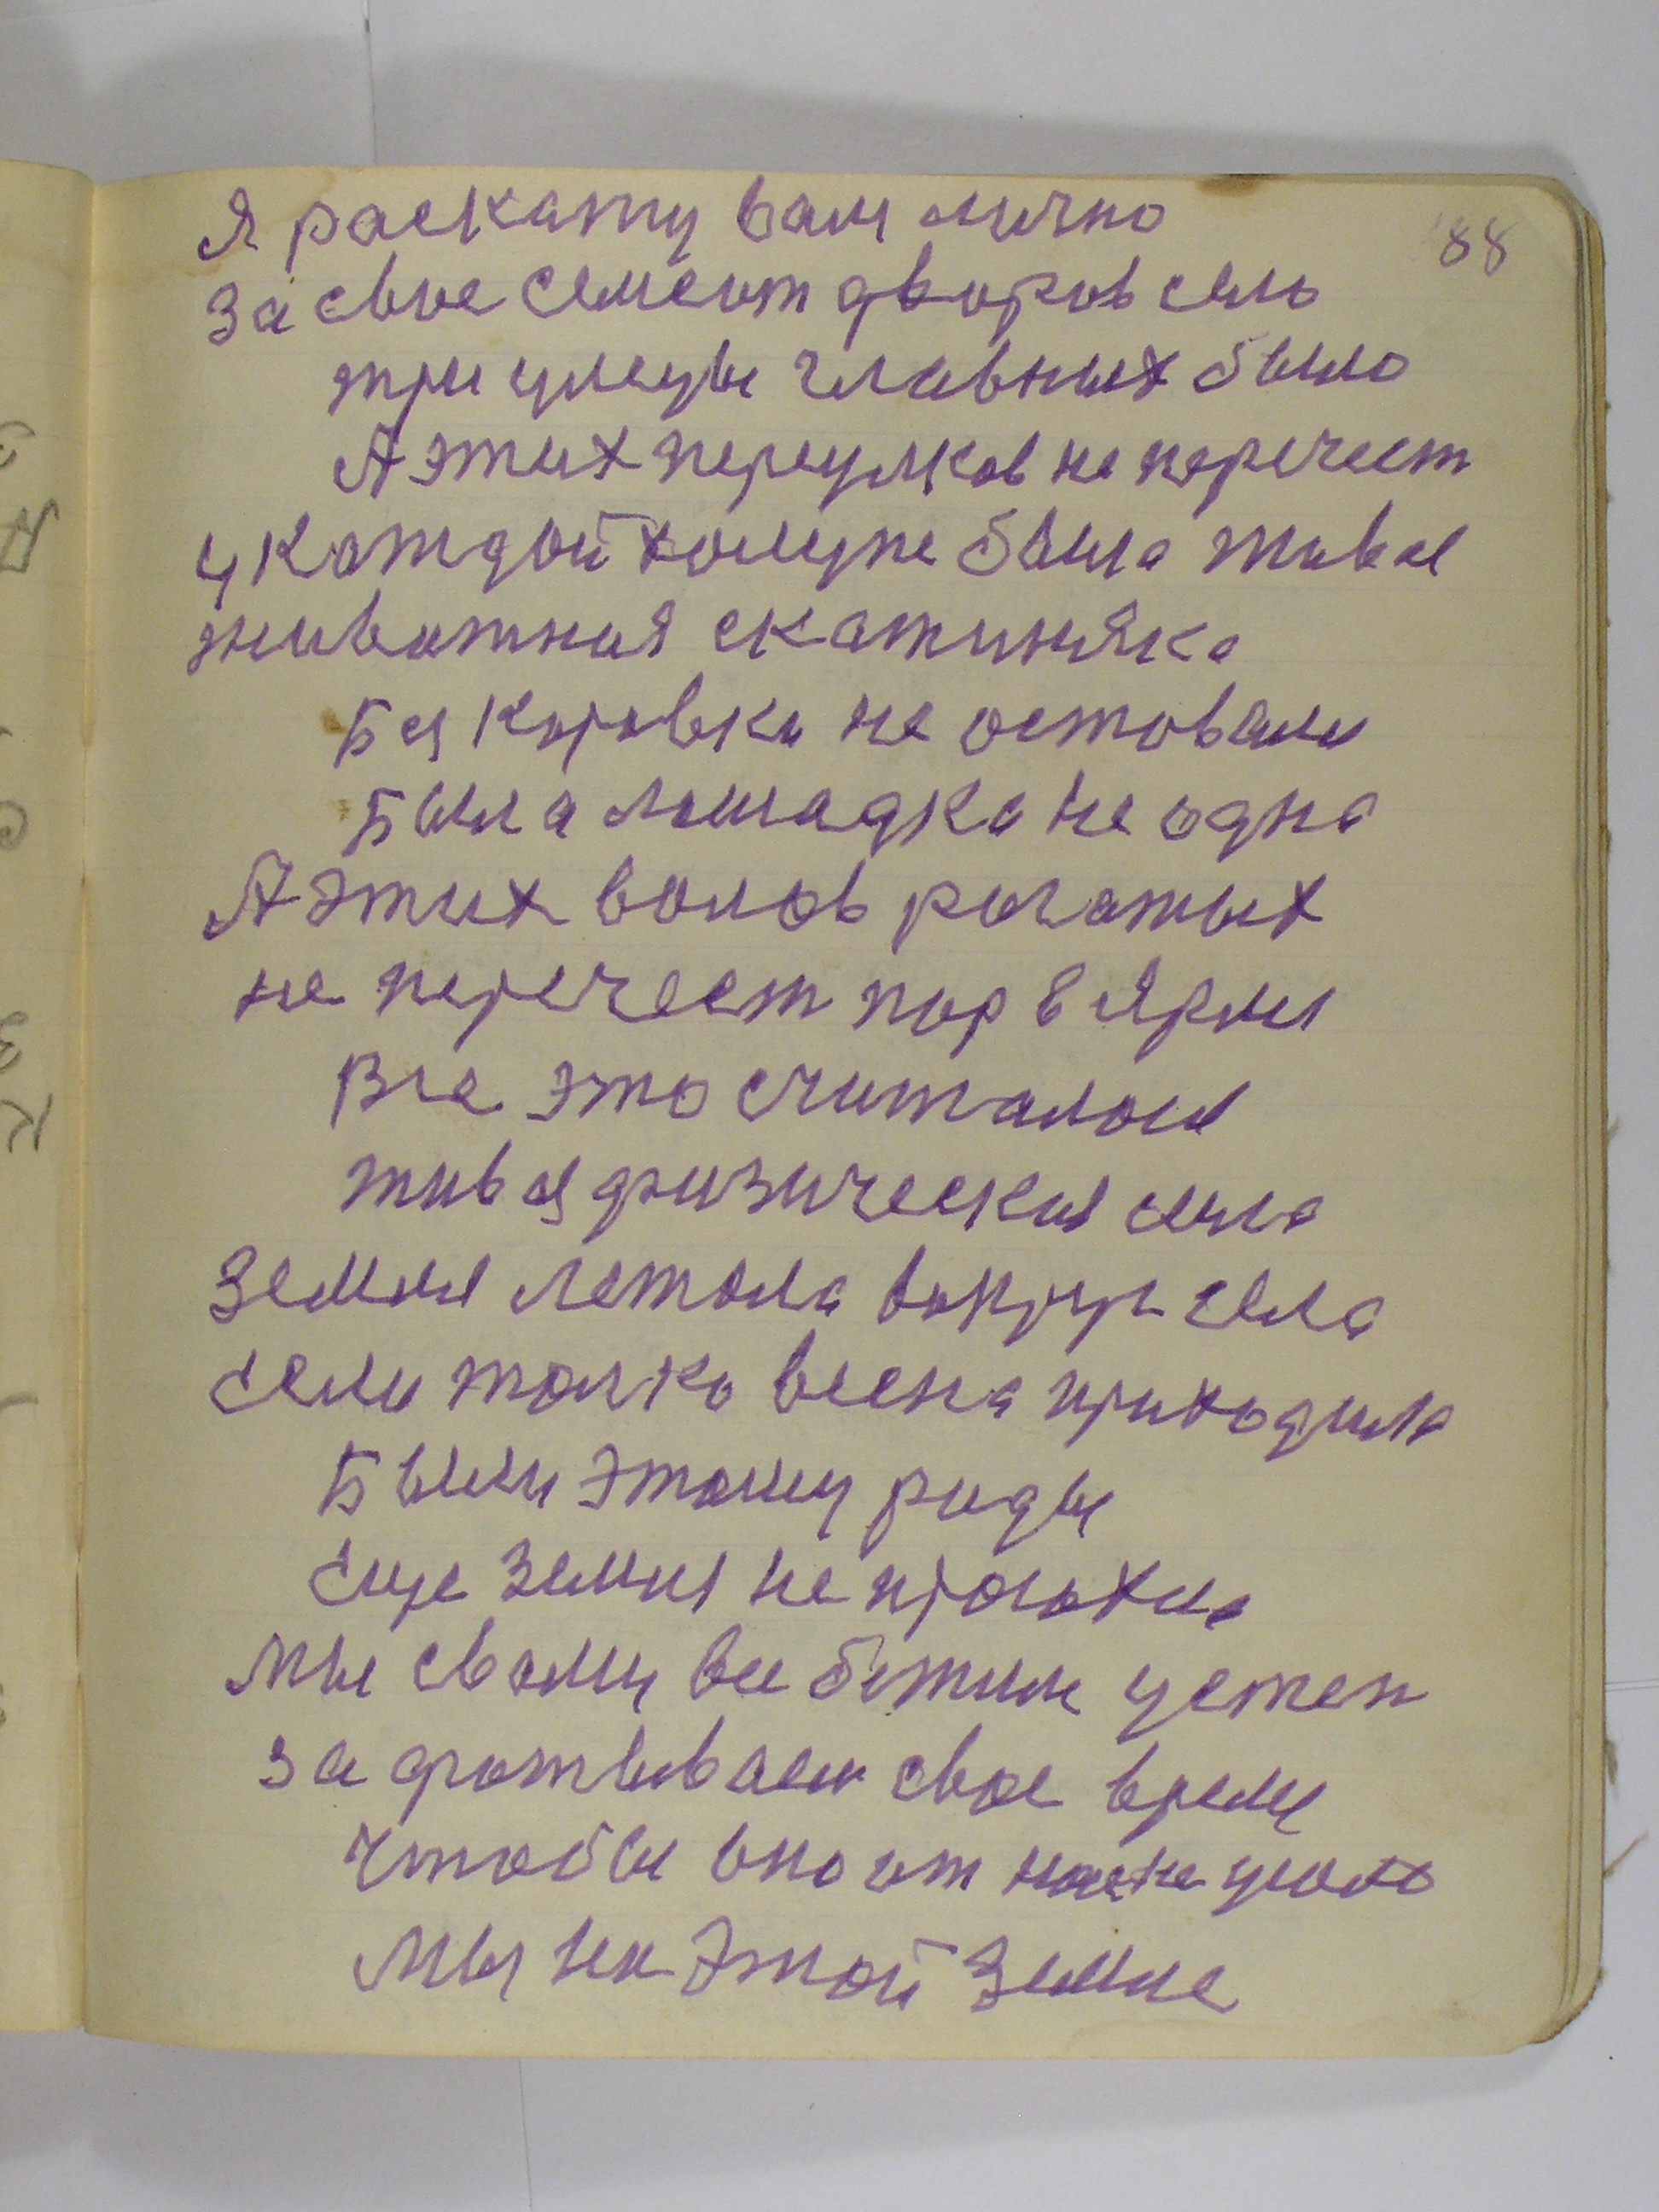 88
Я раскажу вам лично
За свое семсот дворов село
три улецы главных было
А этих переулков не перечест
у каждой халупе была жавая
животная скатиняка
Без коровки не оставали
Была лошадка не одна
А этих волов рогатых
не перечест пар в ярми
Все это считалося
живая физическая сила
Земля лежала вокруг села
Сели толко весна приходила
Были этому рады
Еще земля не прольхла
Мы сваму все бежим устеп
захватываем свое время
Чтобы оно от нас не ушло
Мы на этой Земле